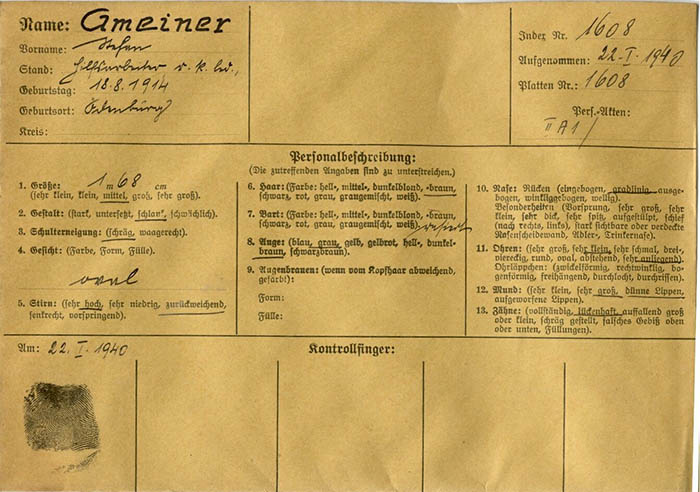 Name: Gmeiner
Vorname: Stefan
Stand: Hilfsarbeiter r. k. led.,
Geburtstag: 18.8.1914
Geburtsort: Ödenburg
Kreis:
Index Nr. 1608
Aufgenommen: 22-I-1940
Platten Nr.: 1608
Pers.-Akten:
II A 1/
Personalbeschreibung:
(Die zutreffenden Angaben sind zu unterstreichen.)
1. Größe: 1 m 68 cm
(sehr klein, klein, mittel, groß, sehr groß).
2. Gestalt: (stark, untersetzt, schlank, schwächlich).
3. Schulterneigung: (schräg, waagerecht).
4. Gesicht: (Farbe, Form, Fülle).
oval
5. Stirn: (sehr hoch, sehr niedrig, zurückweichend,
senkrecht, vorspringend).
6. Haar: (Farbe: hell-, mittel-, dunkelblond, -braun,
schwarz, rot, grau, graugemischt, weiß).
7. Bart: (Farbe: hell-, mittel-, dunkelblond, -braun,
schwarz, rot, grau, graugemischt, weiß). rasiert
8. Auge: (blau, grau, gelb, gelbrot, hell-, dunkel-
braun, schwarzbraun).
9. Augenbrauen: (wenn vom Kopfhaar abweichend,
gefärbt):
Form:
Fülle:
10. Nase: Rücken (eingebogen, gradlinig, ausge-
bogen, winkliggebogen, wellig).
Besonderheiten (Vorsprung, sehr groß, sehr
klein, sehr dick, sehr spitz, aufgestülpt, schief
(nach rechts, links), stark sichtbare oder verdeckte
Nasenscheidewand, Adler-, Trinkernase).
11. Ohren: (sehr groß, sehr klein, sehr schmal, drei-,
viereckig, rund, oval, abstehend, sehr anliegend).
Ohrläppchen: (zwickelförmig, rechtwinklig, bo-
genförmig, freihängend, durchlocht, durchrissen).
12. Mund: (sehr klein, sehr groß, dünne Lippen,
aufgeworfene Lippen).
13. Zähne: (vollständig, lückenhaft, auffallend groß
oder klein, schräg gestellt, falsches Gebiß oben
oder unten, Füllungen).
Am: 22. I. 1940
Kontrollfinger: